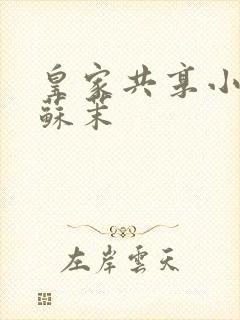 皇家共享小
蘇茉
左岸雲天